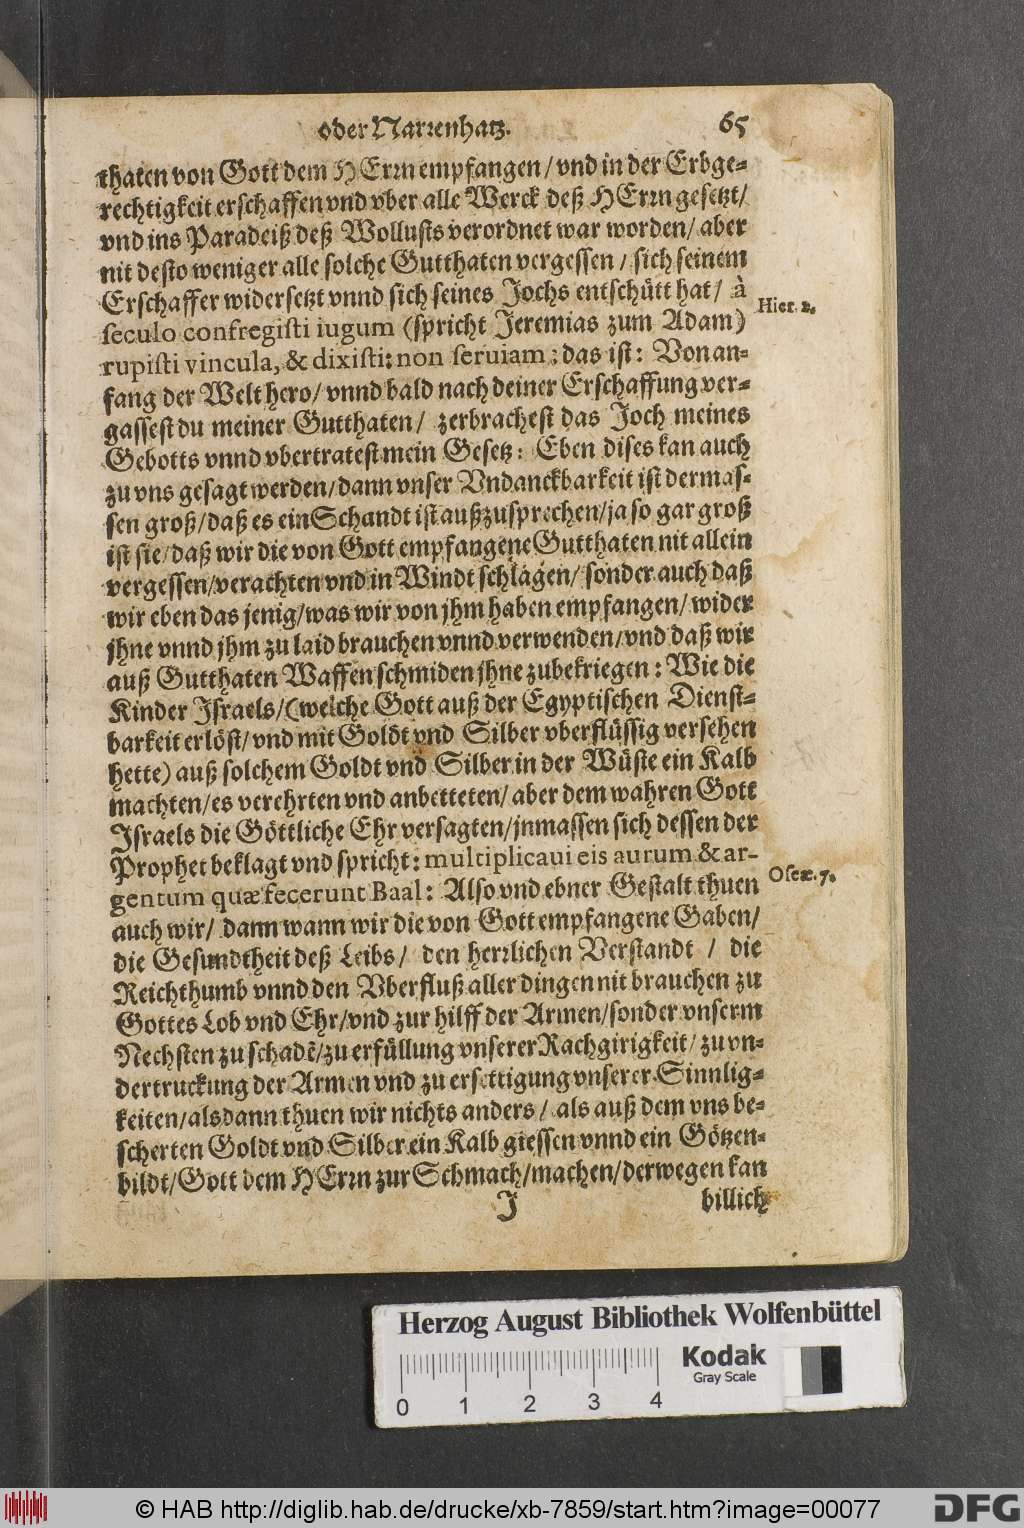 oder Narrenhatz. 65
thaten von Gott dem HErrn empfangen/ vnd in der Erbge-
rechtigkeit erschaffen vnd vber alle Werck deß HErrn gesetzt/
vnd ins Paradeiß deß Wollusts verordnet war worden/ aber
nit desto weniger alle solche Gutthaten vergessen/ sich seinem
Erschaffer widersetzt vnnd sich seines Jochs entschütt hat/ à
seculo confregisti iugum (spricht Jeremias zum Adam)
Hier. 2.
rupisti vincula, & dixisti: non seruiam: das ist: Von an-
fang der Welt hero/ vnnd bald nach deiner Erschaffung ver-
gassest du meiner Gutthaten/ zerbrachest das Joch meines
Gebotts vnnd vbertratest mein Gesetz: Eben dises kan auch
zu vns gesagt werden/ dann vnser Vndanckbarkeit ist dermas-
sen groß/ daß es ein Schandt ist außzusprechen/ ja so gar groß
ist sie/ daß wir die von Gott empfangene Gutthaten nit allein
vergessen/ verachten vnd in Windt schlagen/ sonder auch daß
wir eben das jenig/ was wir von jhm haben empfangen/ wider
jhne vnnd jhm zu laid brauchen vnnd verwenden/ vnd daß wir
auß Gutthaten Waffen schmiden jhne zubekriegen: Wie die
Kinder Israels/ (welche Gott auß der Egyptischen Dienst-
barkeit erlöst/ vnd mit Goldt vnd Silber vberflüssig versehen
hette) auß solchem Goldt vnd Silber in der Wüste ein Kalb
machten/ es verehrten vnd anbetteten/ aber dem wahren Gott
Israels die Göttliche Ehr versagten/ jnmassen sich dessen der
Prophet beklagt vnd spricht: multiplicaui eis aurum & ar-
gentum quæ fecerunt Baal: Also vnd ebner Gestalt thuen
Oseæ. 7.
auch wir/ dann wann wir die von Gott empfangene Gaben/
die Gesundtheit deß Leibs/ den herrlichen Verstandt / die
Reichthumb vnnd den Vberfluß aller dingen nit brauchen zu
Gottes Lob vnd Ehr/ vnd zur hilff der Armen/ sonder vnserm
Nechsten zu schadẽ/ zu erfüllung vnserer Rachgirigkeit/ zu vn-
dertruckung der Armen vnd zu ersettigung vnserer Sinnlig-
keiten/ alsdann thuen wir nichts anders/ als auß dem vns be-
scherten Goldt vnd Silber ein Kalb giessen vnnd ein Götzen-
bildt/ Gott dem HErrn zur Schmach/ machen/ derwegen kan
J billich
Herzog August Bibliothek Wolfenbüttel
Kodak
Gray Scale
0 1 2 3 4
© HAB http://diglib.hab.de/drucke/xb-7859/start.htm?image=00077
DFG